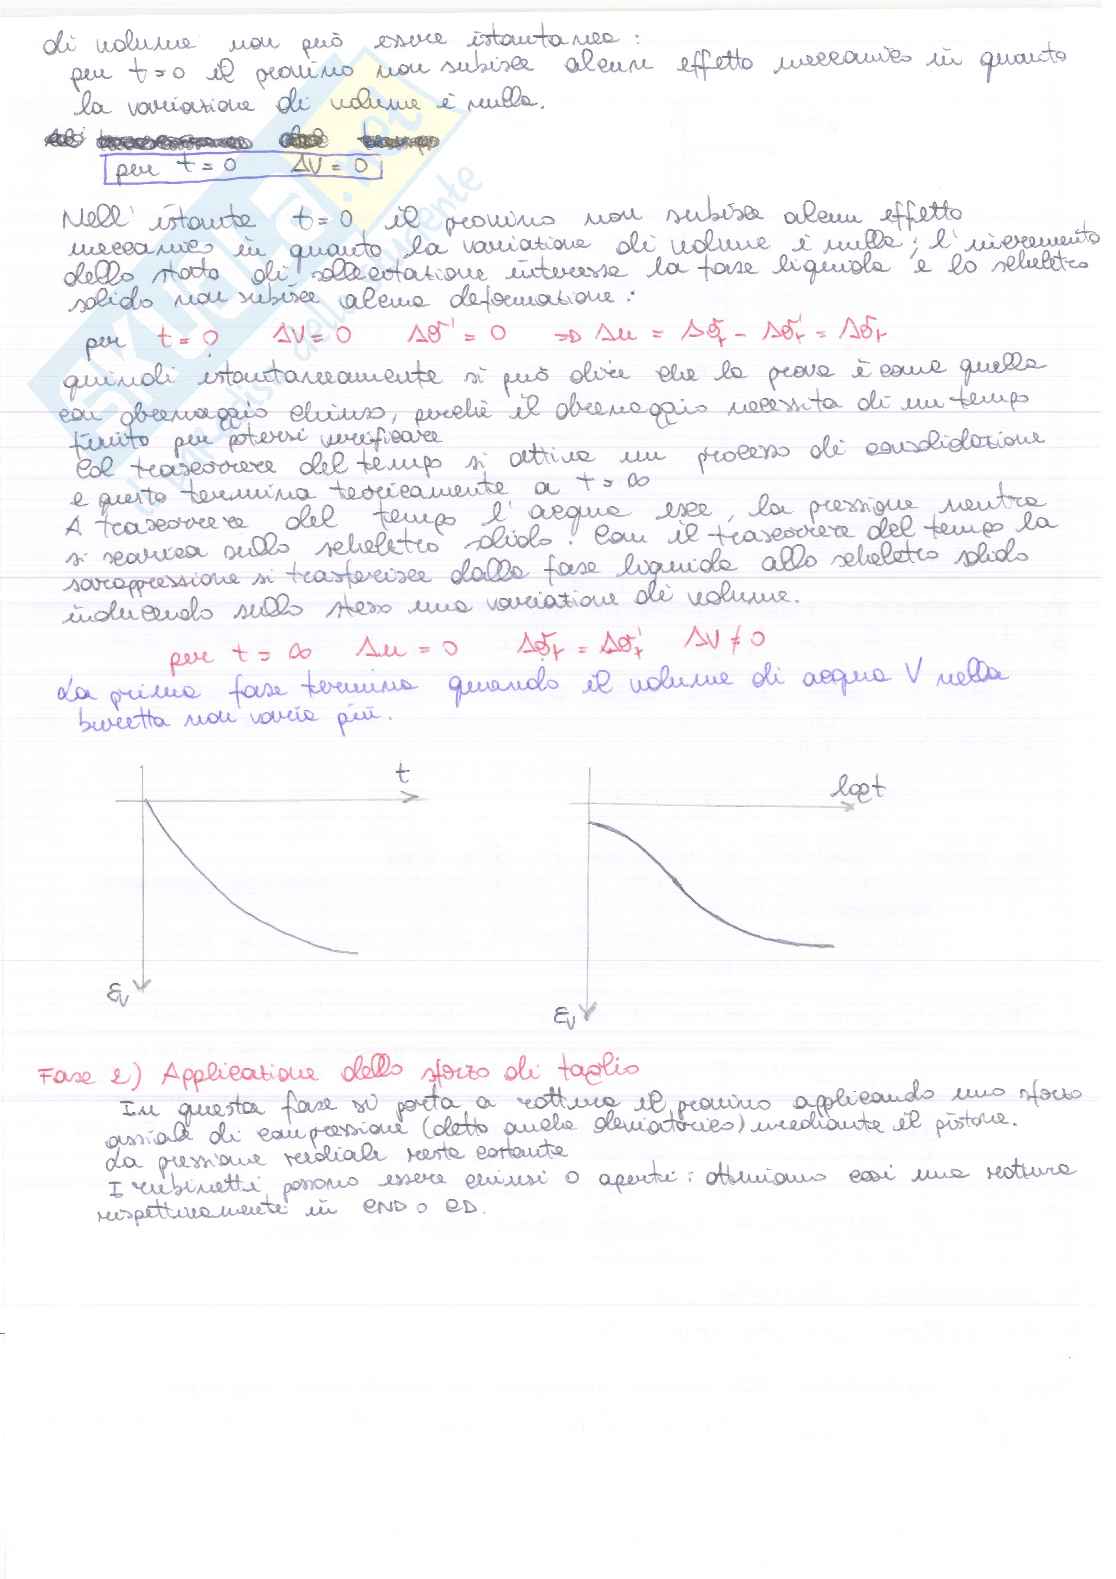 di volume non può essere istantanea:
per t=0 il provino non subisce alcun effetto meccanico in quanto
la variazione di volume è nulla.
per t=0 ΔV=0
Nell'istante t=0 il provino non subisce alcun effetto
meccanico in quanto la variazione di volume è nulla; l'incremento
dello stato di sollecitazione interessa la fase liquida e lo scheletro
solido non subisce alcuna deformazione:
per t=0 ΔV=0 Δσ'=0 ⇒ Δu = Δσr - Δσ'r = Δσr
quindi istantaneamente si può dire che la prova è come quella
con drenaggio chiuso, perchè il drenaggio necessita di un tempo
finito per potersi verificare
Col trascorrere del tempo si attiva un processo di consolidazione
e questo termina teoricamente a t=∞
A trascorrere del tempo l'acqua esce, la pressione neutra
si scarica sullo scheletro solido. Con il trascorrere del tempo la
sovrappressione si trasferisce dalla fase liquida allo scheletro solido
inducendo sullo stesso una variazione di volume.
per t=∞ Δu=0 Δσr=Δσ'r ΔV≠0
La prima fase termina quando il volume di acqua V nella
buretta non varia più.
t
log t
εv
εv
Fase 2) Applicazione dello sforzo di taglio
In questa fase si porta a rottura il provino applicando uno sforzo
assiale di compressione (detto anche deviatorico) mediante il pistone.
La pressione radiale resta costante
I rubinetti possono essere chiusi o aperti: otteniamo così una rottura
rispettivamente in CND o CD.
SKUOLA.net